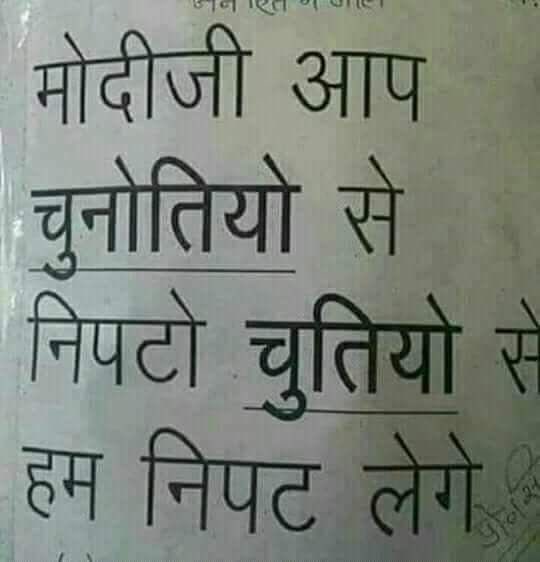 मोदीजी आप
चुनोतियो से
निपटो चुतियो से
हम निपट लेगे